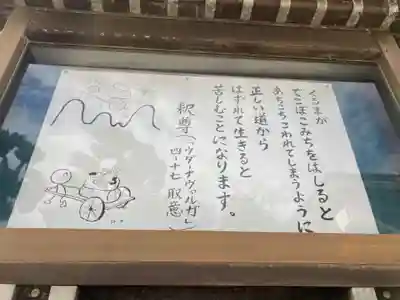 くるまが
でこぼこみちをはしると
あちこちこわれてしまうように
正しい道から
はずれて生きると
苦しむことになります。
釈尊(『ウダーナヴァルガ』
四-十七 取意)